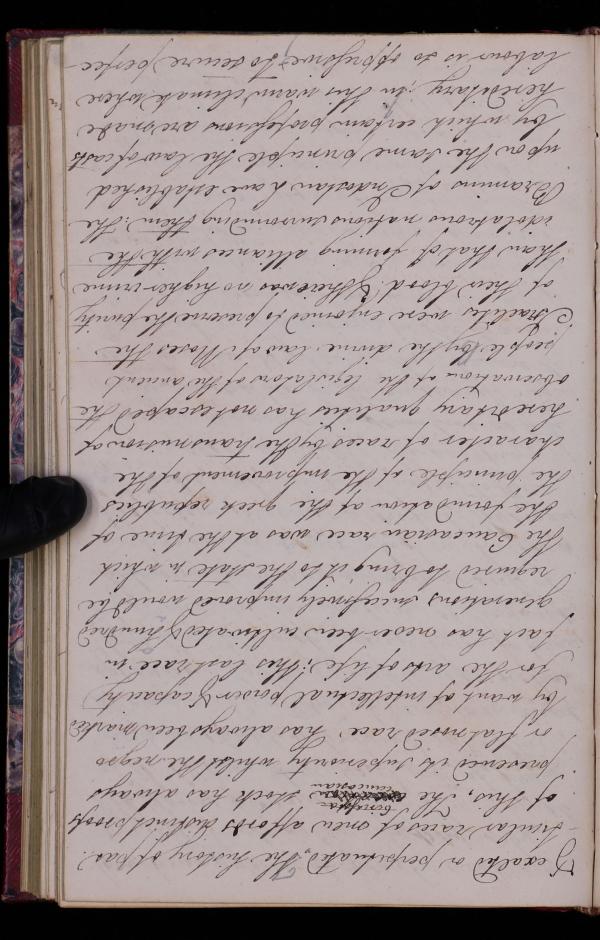 & exalted or perpetuated. The history of par
-ticular races of men affords distinct proofs
of this, the Caucasian stock has always
preserved its superiority whilst the negro
or flat nosed race has always been marked
by want of intellectual power & capacity
for the arts of life. This last race in
fact has never been cultivated & hundred
generations successively improved would be
required to bring it to the state in which
the Caucasian race was at the time of
the formation of the greek republics
the principle of the improvement of the
character of races by the transmission of
hereditary qualities has not escaped the
observation of the legislators of the ancient
people. By the divine law of Moses the
Israelites were enjoined to preserve the purity
of their blood & there was no higher crime
than that of forming alliances with the
idolatrous nations surrounding them. The
Bramins of Indostan have established
upon the same principle the law of casts
by which certain professions are made
hereditary. In this warm climate where
labour is so oppressive to secure perfec